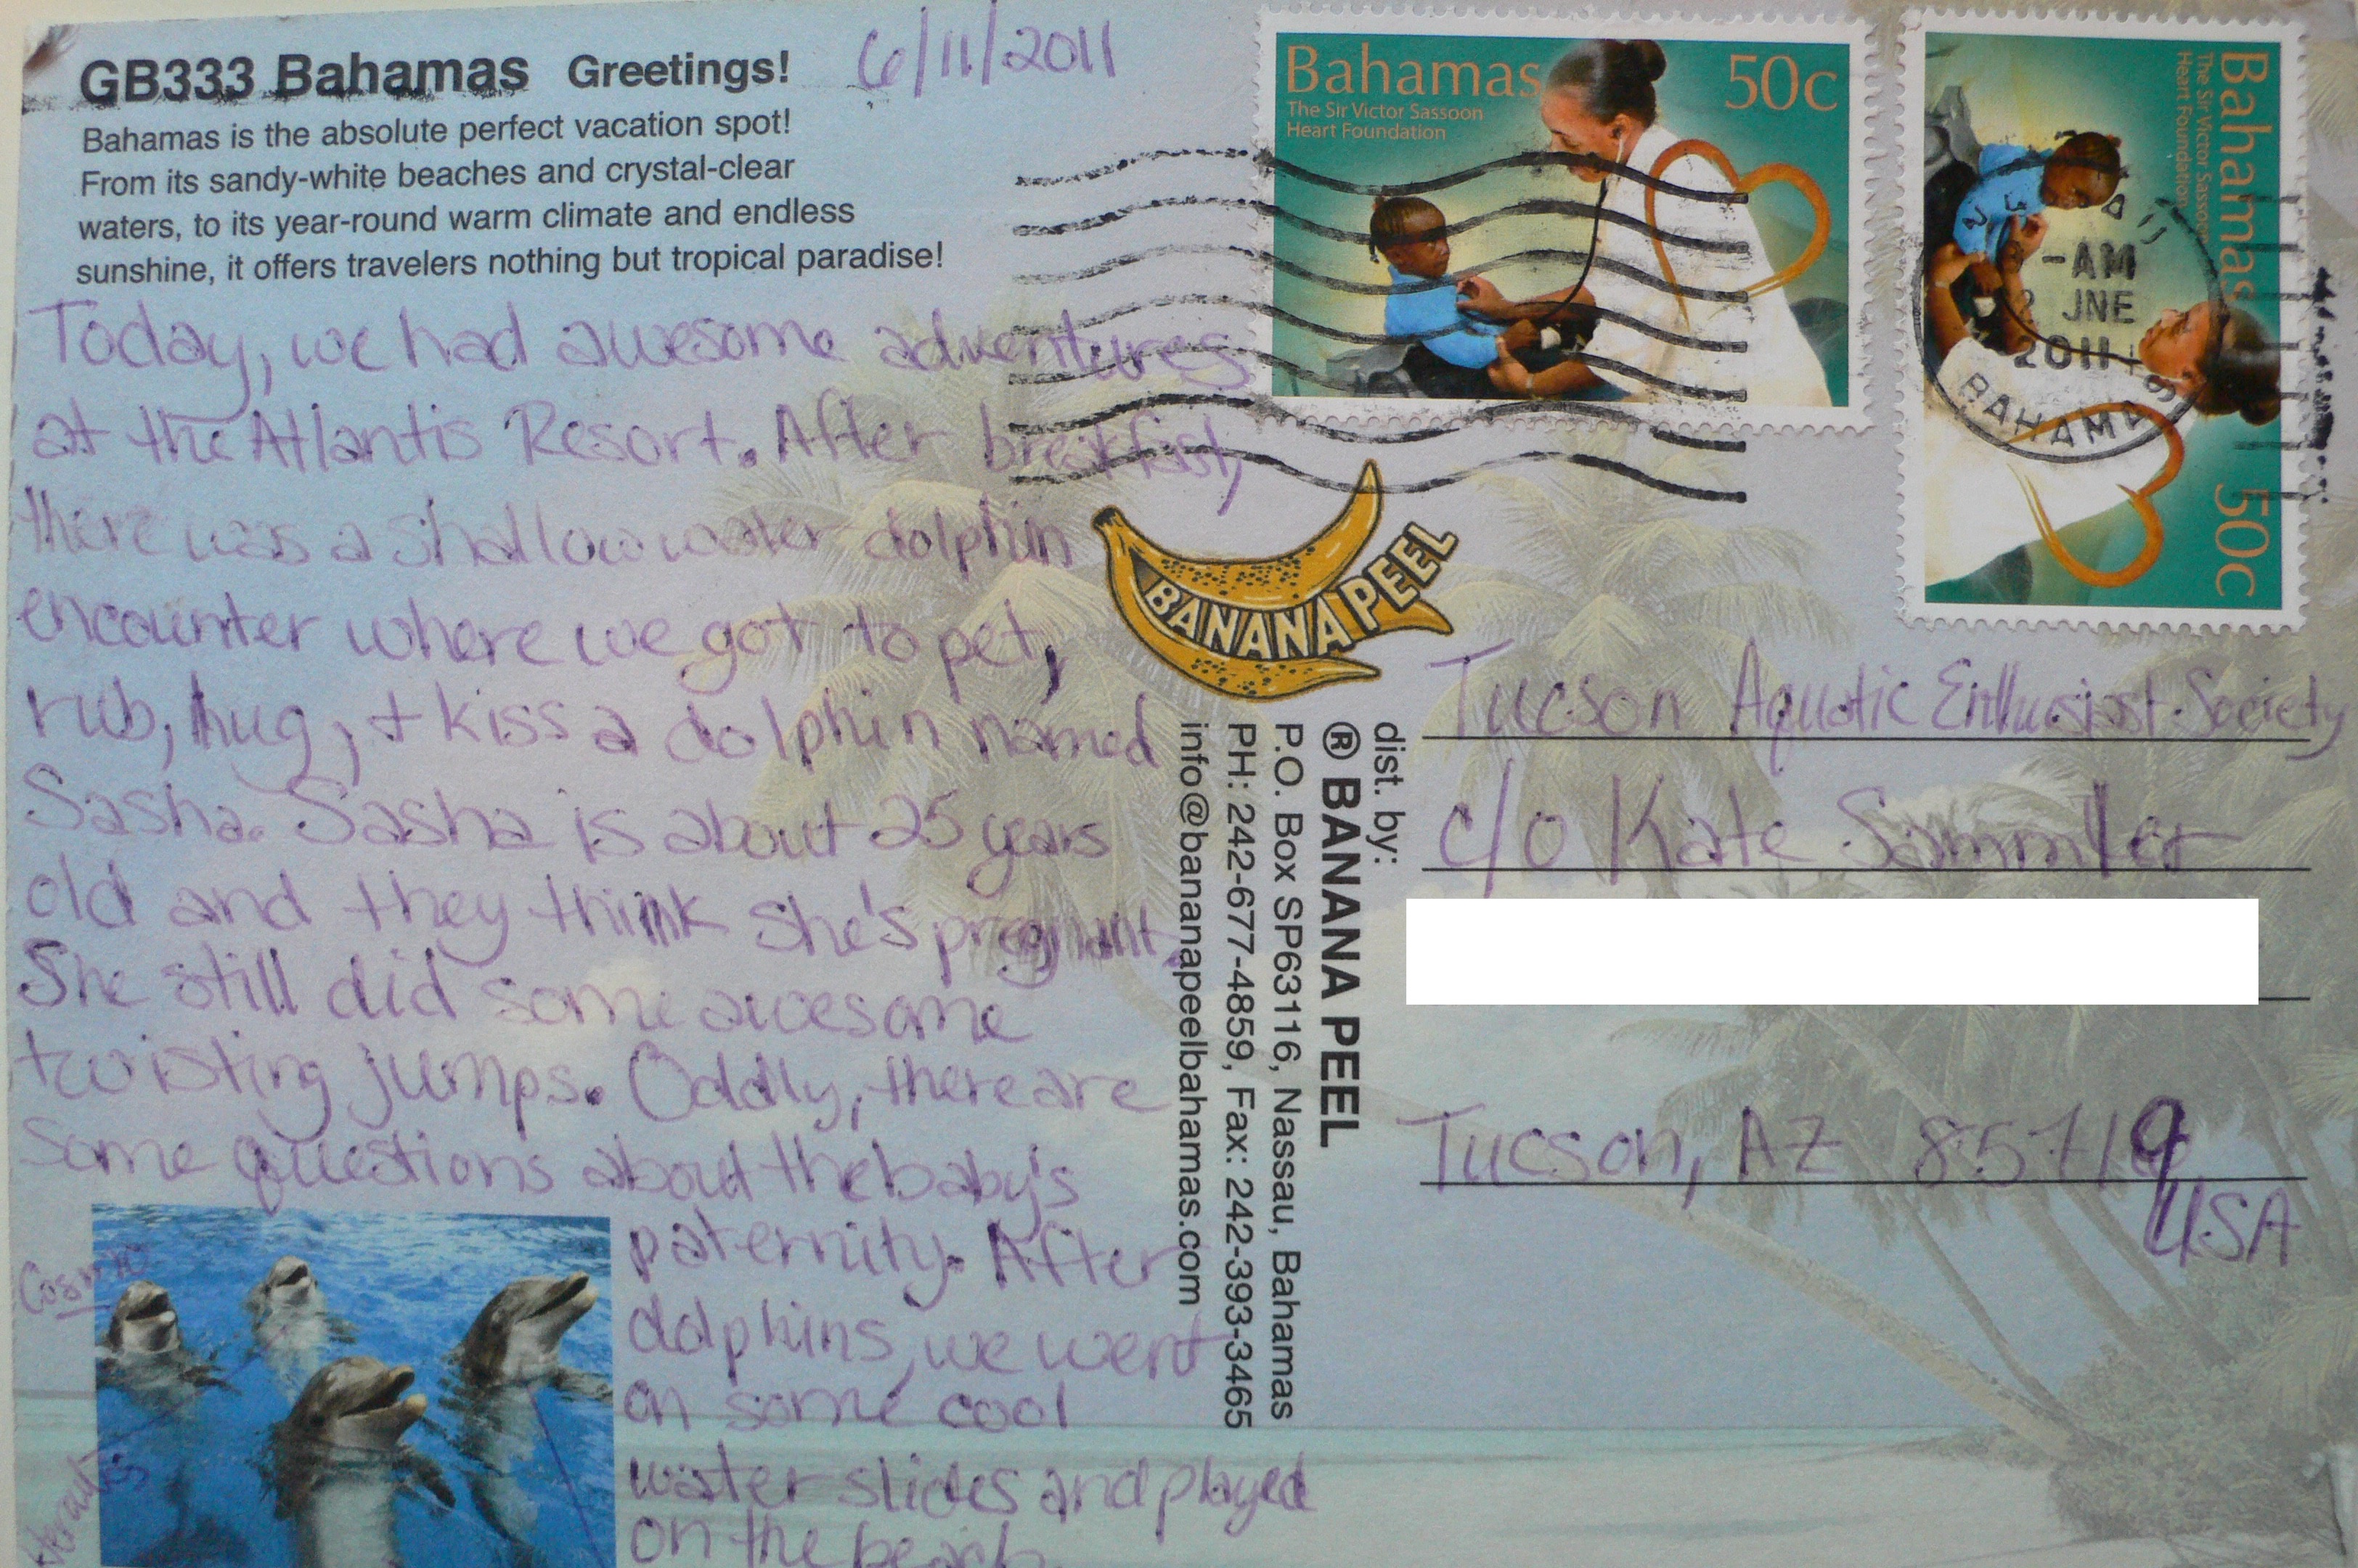 GB333 Bahamas Greetings!
6/11/2011
Bahamas is the absolute perfect vacation spot!
From its sandy-white beaches and crystal-clear
waters, to its year-round warm climate and endless
sunshine, it offers travelers nothing but tropical paradise!
Today, we had awesome adventures
at the Atlantis Resort. After breakfast,
there was a shallow water dolphin
encounter where we got to pet,
rub, hug, + kiss a dolphin named
Sasha. Sasha is about 25 years
old and they think she's pregnant.
She still did some awesome
twisting jumps. Oddly, there are
some questions about the baby's
paternity. After
dolphins, we went
on some cool
water slides and played
on the beach.
BANANA PEEL
dist. by:
® BANANA PEEL
P.O. Box SP63116, Nassau, Bahamas
PH: 242-677-4859, Fax: 242-393-3465
info@bananapeelbahamas.com
Bahamas 50c
The Sir Victor Sassoon
Heart Foundation
Bahamas 50c
The Sir Victor Sassoon
Heart Foundation
-AM
JNE
2011
BAHAMAS
Tucson Aquatic Enthusiast Society
c/o Kate Sammler
Tucson, AZ 85719
USA